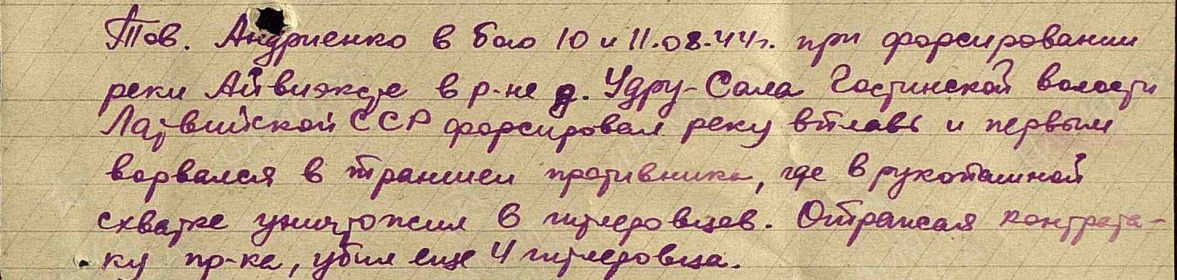 Тов. Андриенко в бою 10 и 11.08.44г. при форсировании
реки Айвиэксте в р-не д. Удру-Сала Гостинской волости
Латвийской ССР форсировал реку вплавь и первым
ворвался в траншеи противника, где в рукопашной
схватке уничтожил 6 гитлеровцев. Отражая контрата-
ку пр-ка, убил еще 4 гитлеровца.